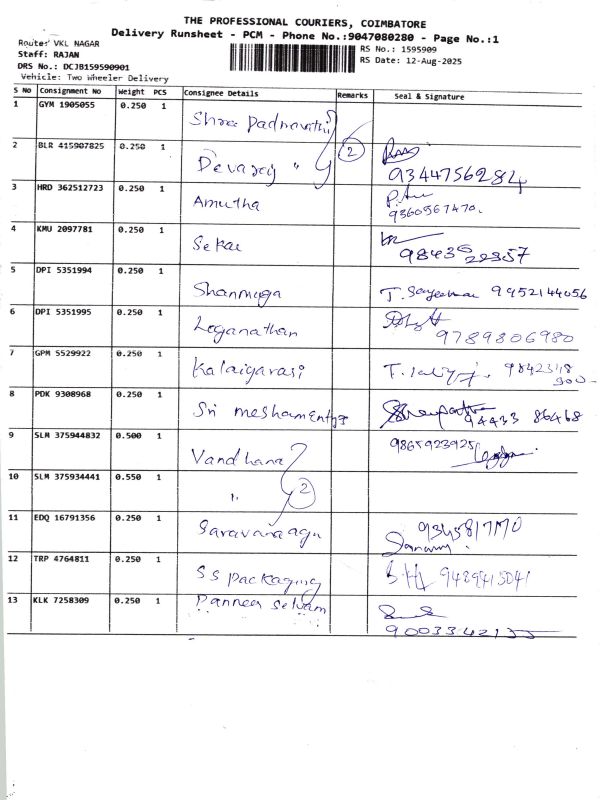 THE PROFESSIONAL COURIERS, COIMBATORE
Delivery Runsheet - PCM - Phone No.:9047080280 - Page No.:1
Route: VKL NAGAR
Staff: RAJAN
DRS No.: DCJB159590901
Vehicle: Two Wheeler Delivery
RS No.: 1595909
RS Date: 12-Aug-2025
S No Consignment No Weight PCS Consignee Details Remarks Seal & Signature
1 GYM 1905055 0.250 1 Shree Padmavathi
2 BLR 415907825 0.250 1 Devaraj " 2
9344756284
3 HRD 362512723 0.250 1 Amutha
9360567470.
4 KMU 2097781 0.250 1 Sekar
5 DPI 5351994 0.250 1 Shanmuga 9952144056
6 DPI 5351995 0.250 1 Loganathan
9789806980
7 GPM 5529922 0.250 1 Kalaiyarasi
8 PDK 9308968 0.250 1 Sri
94433 86468
9 SLM 375944832 0.500 1 Vandhana 9865923925
10 SLM 375934441 0.550 1 " 2
11 EDQ 16791356 0.250 1
12 TRP 4764811 0.250 1 SS Packaging 9489415041
13 KLK 7258309 0.250 1 Panneer Selvam